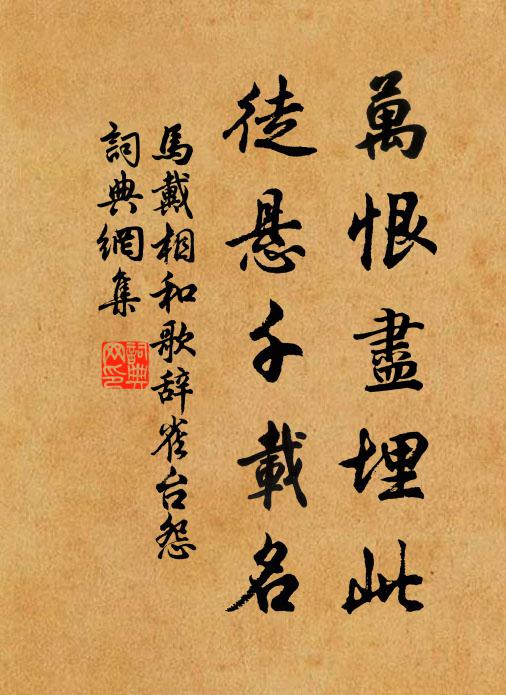 萬恨盡埋此
徒悬千載名
馬戴相和歌辞雀台怨
詞典網集
詞典网印